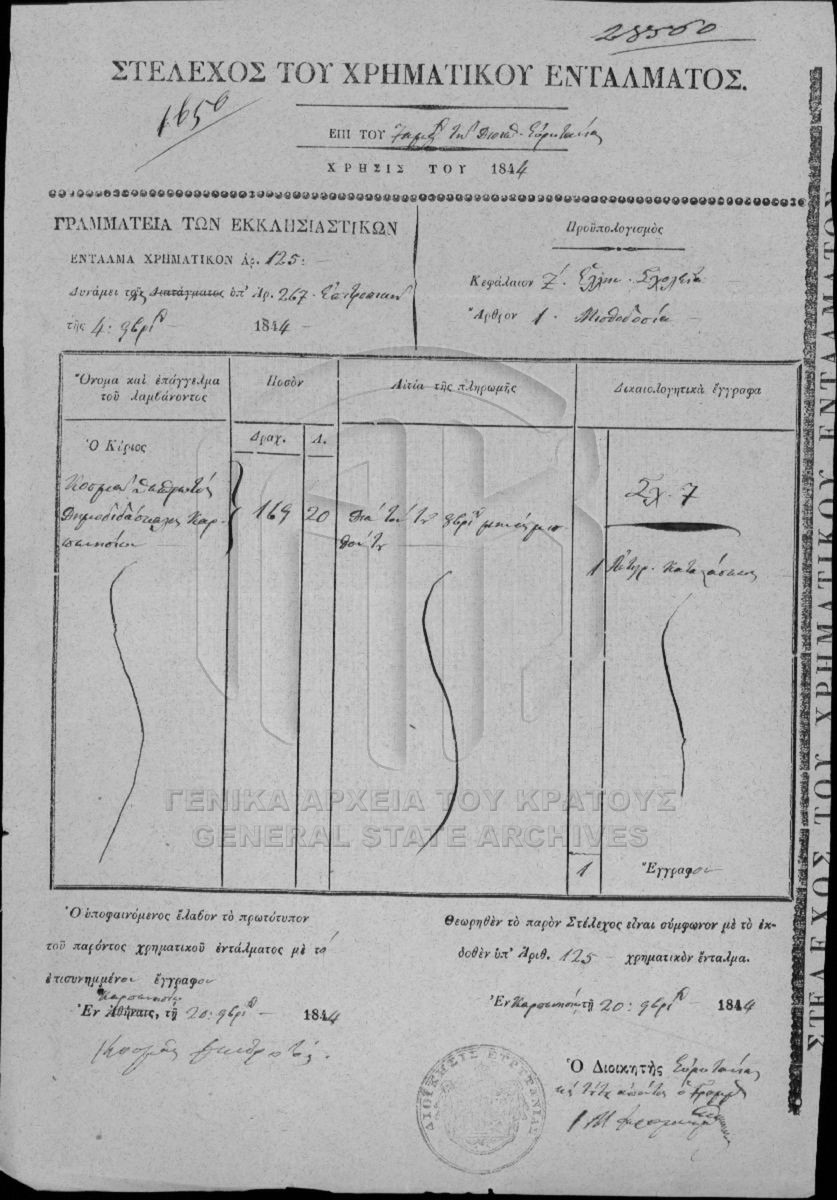 28550
ΣΤΕΛΕΧΟΣ ΤΟΥ ΧΡΗΜΑΤΙΚΟΥ ΕΝΤΑΛΜΑΤΟΣ.
1650
ΕΠΙ ΤΟΥ
ΧΡΗΣΙΣ ΤΟΥ 1844
ΓΡΑΜΜΑΤΕΙΑ ΤΩΝ ΕΚΚΛΗΣΙΑΣΤΙΚΩΝ
ΕΝΤΑΛΜΑ ΧΡΗΜΑΤΙΚΟΝ Αρ. 125:
Δυνάμει τῆς Διατάγματος ὑπ' Αρ. 267
τῆς 4: 9βρίου 1844
Προϋπολογισμὸς
Κεφάλαιον Ζ΄. Ἑλλην. Σχολεῖα
Ἄρθρον 1. Μισθοδοσία
Ὄνομα καὶ ἐπάγγελμα
τοῦ λαμβάνοντος
Ποσὸν
Δραχ. Λ.
Αἰτία τῆς πληρωμῆς
Δικαιολογητικὰ ἔγγραφα
Ὁ Κύριος
Κοσμᾶς
Δημοδιδάσκαλος Καρ-
πενησίου
169 20
Διὰ τὸν 9βρίου μισ-
θόν του
Σχ. 7
1 Ἀντίγρ. καταστάσεως
1 Ἔγγραφον
Ὁ ὑποφαινόμενος ἔλαβον τὸ πρωτότυπον
τοῦ παρόντος χρηματικοῦ ἐντάλματος μὲ τὸ
ἐπισυνημμένον ἔγγραφον
Καρπενησίῳ
Ἐν Ἀθήναις, τῇ 20: 9βρίου 1844
Κοσμᾶς
Θεωρηθὲν τὸ παρὸν Στέλεχος εἶναι σύμφωνον μὲ τὸ ἐκ-
δοθὲν ὑπ' Ἀριθ. 125 χρηματικὸν ἔνταλμα.
Ἐν Καρπενησίῳ τῇ 20: 9βρίου 1844
Ὁ Διοικητὴς Εὐρυτανίας
ΔΙΟΙΚΗΣΙΣ ΕΥΡΥΤΑΝΙΑΣ
ΣΤΕΛΕΧΟΣ ΤΟΥ ΧΡΗΜΑΤΙΚΟΥ ΕΝΤΑΛΜΑΤΟΣ
ΓΕΝΙΚΑ ΑΡΧΕΙΑ ΤΟΥ ΚΡΑΤΟΥΣ
GENERAL STATE ARCHIVES